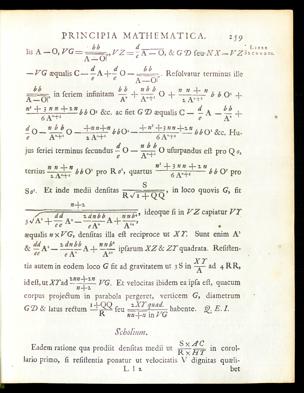 PRINCIPIA MATHEMATICA. 259
LIBER
SECUNDUS.
lis A — O, VG = bb/A—O|ⁿ, VZ = d/e A—O, & GD seu NX — VZ
— VG æqualis C — d/e A + d/e O — bb/A—O|ⁿ. Resolvatur terminus ille
bb/A—O|ⁿ in seriem infinitam bb/Aⁿ + nbb/Aⁿ⁺¹ O + nn+n/2Aⁿ⁺² bbO² +
n³+3nn+2n/6Aⁿ⁺³ bbO³ &c. ac fiet GD æqualis C — d/e A — bb/Aⁿ +
d/e O — nbb/Aⁿ⁺¹ O — +nn+n/2Aⁿ⁺² bbO² — +n³+3nn+2n/6Aⁿ⁺³ bbO³ &c. Hu-
jus seriei terminus secundus d/e O — nbb/Aⁿ⁺¹ O usurpandus est pro Qo,
tertius nn+n/2Aⁿ⁺² bbO² pro Ro², quartus n³+3nn+2n/6Aⁿ⁺³ bbO³ pro
So³. Et inde medii densitas S/R√1+QQ, in loco quovis G, fit
n+2/3√A²+dd/ee A²—2dnbb/eAⁿ A+nnb⁴/A²ⁿ, ideoque si in VZ capiatur VY
æqualis n×VG, densitas illa est reciproce ut XY. Sunt enim A²
& dd/ee A²—2dnbb/eAⁿ A+nnb⁴/A²ⁿ ipsarum XZ & ZY quadrata. Resisten-
tia autem in eodem loco G fit ad gravitatem ut 3S in XY/A ad 4RR,
id est, ut XY ad 2nn+2n/n+2 VG. Et velocitas ibidem ea ipsa est, quacum
corpus projectum in parabola pergeret, verticem G, diametrum
GD & latus rectum 1+QQ/R seu 2XY quad./nn+n in VG habente. Q. E. I.
Scholium.
Eadem ratione qua prodiit densitas medii ut S×AC/R×HT in corol-
lario primo, si resistentia ponatur ut velocitatis V dignitas quæli-
L l 2 bet